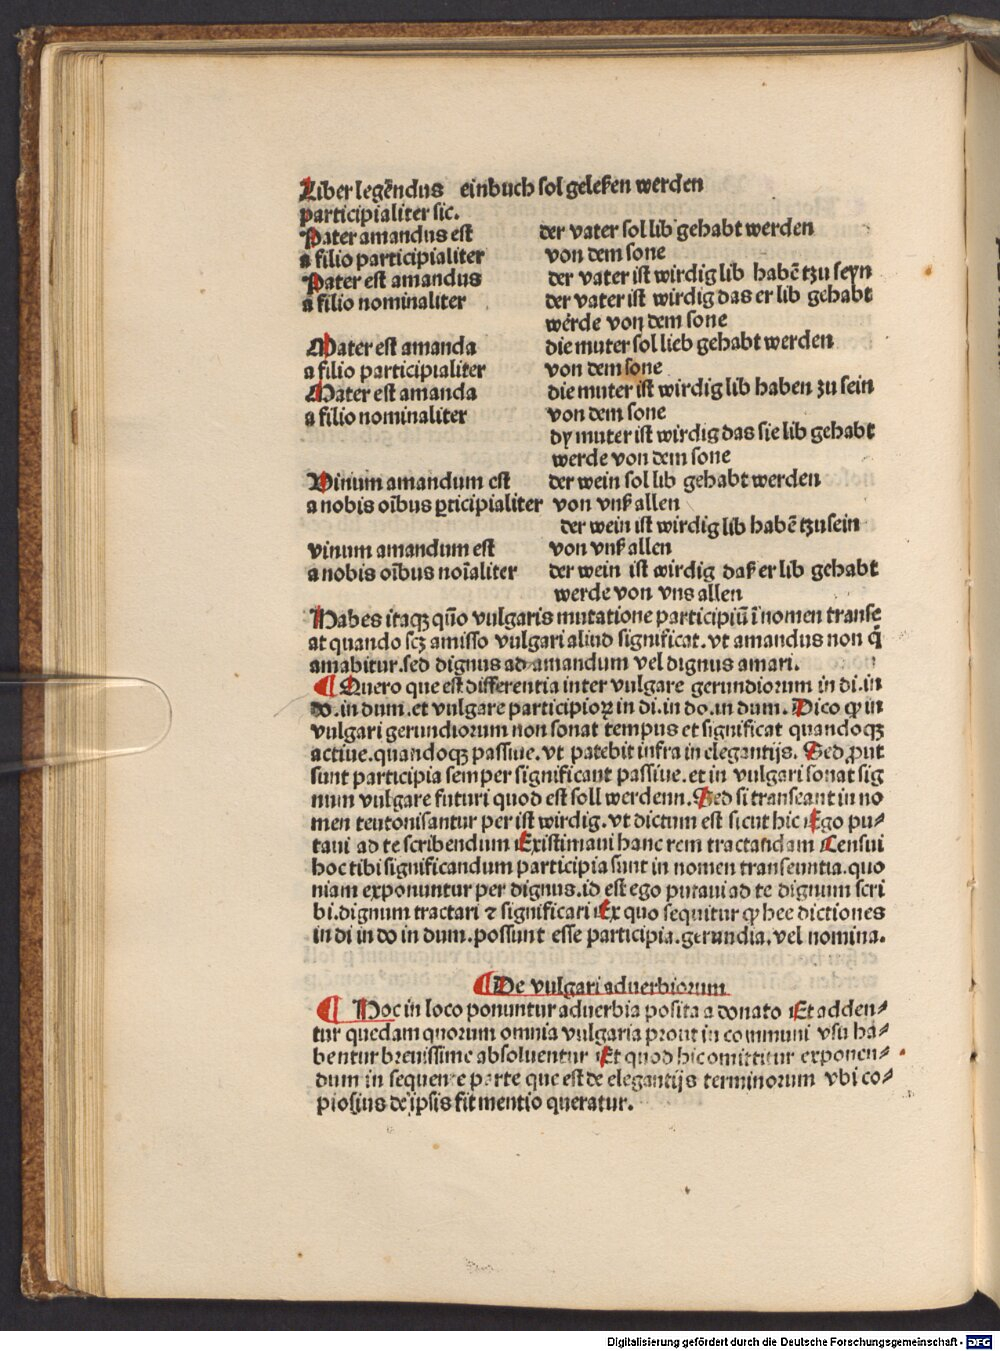 Liber legēndus einbuch sol geleſen werden
participialiter sic.
Pater amandus est der vater sol lib gehabt werden
a filio participialiter von dem sone
Pater est amandus der vater ist wirdig lib habē tzu seyn
a filio nominaliter der vater ist wirdig das er lib gehabt
werde von dem sone
Mater est amanda die muter sol lieb gehabt werden
a filio participialiter von dem sone
Mater est amanda die muter ist wirdig lib haben zu sein
a filio nominaliter von dem sone
dy muter ist wirdig das sie lib gehabt
werde von dem sone
Vinum amandum est der wein sol lib gehabt werden
a nobis oībus ꝑticipialiter von vnß allen
der wein ist wirdig lib habē tzu sein
vinum amandum est von vnß allen
a nobis oībus noīaliter der wein ist wirdig daß er lib gehabt
werde von vns allen
Habes itaqꝫ quō vulgaris mutatione participiū ī nomen transe
at quando scꝫ amisso vulgari aliud significat. vt amandus non q̄
amabitur. sed dignus ad amandum vel dignus amari.
¶ Quero que est differentia inter vulgare gerundiorum in di. in
do. in dum. et vulgare participioꝝ in di. in do. in dum. Dico ꝙ in
vulgari gerundiorum non sonat tempus et significat quandoqꝫ
actiue. quandoqꝫ passiue. vt patebit infra in elegantijs. Sed ꝓut
sunt participia semper significant passiue. et in vulgari sonat sig
num vulgare futuri quod est soll werdenn. Sed si transeant in no
men teutonisantur per ist wirdig. vt dictum est sicut hic Ego pu⸗
taui ad te scribendum Existimaui hanc rem tractandam Censui
hoc tibi significandum participia sunt in nomen transeuntia. quo
niam exponuntur per dignus. id est ego putaui ad te dignum scri
bi. dignum tractari ⁊ significari Ex quo sequitur ꝙ hee dictiones
in di in do in dum. possunt esse participia. gerundia. vel nomina.
¶ De vulgari aduerbiorum
¶ Hoc in loco ponuntur aduerbia posita a donato Et adden⸗
tur quedam quorum omnia vulgaria prout in communi vsu ha⸗
bentur breuissime absoluentur Et quod hic omittitur exponen⸗
dum in sequente parte que est de elegantijs terminorum vbi co⸗
piosius de ipsis fit mentio queratur.
Digitalisierung gefördert durch die Deutsche Forschungsgemeinschaft - DFG